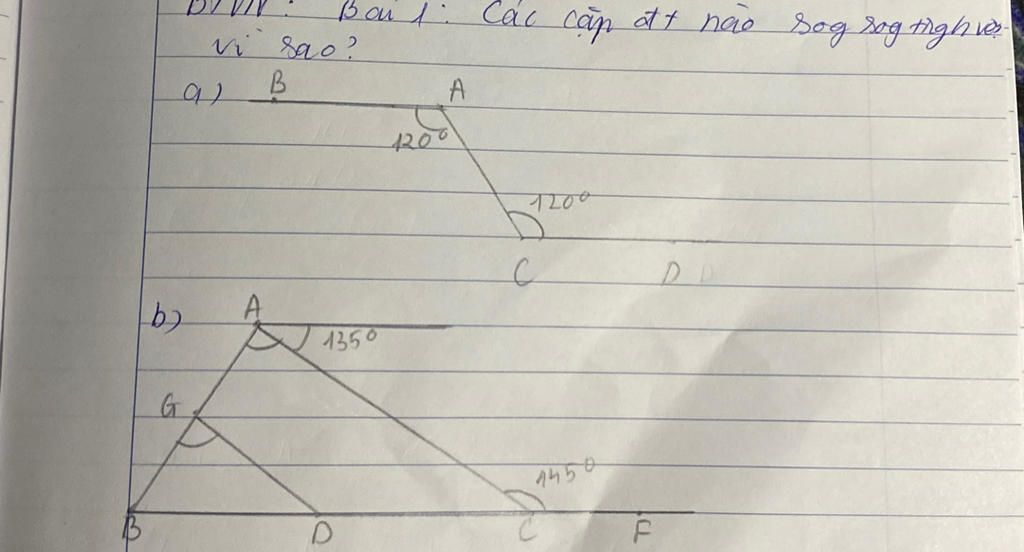 BTVN: Bài 1: Các cặp đt nào sog sog
vì sao?
a) B A
120°
120°
C D D
b) A
135°
G
145°
B D C F